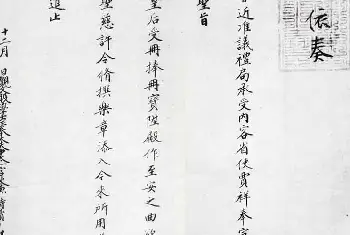 依奏
近准議禮局承受內客省使賈祥奉宣
聖旨
皇后受冊捧冊寶陞殿作至安之曲
聖慈許令脩撰樂章添入今來所用
進止
十二月 日